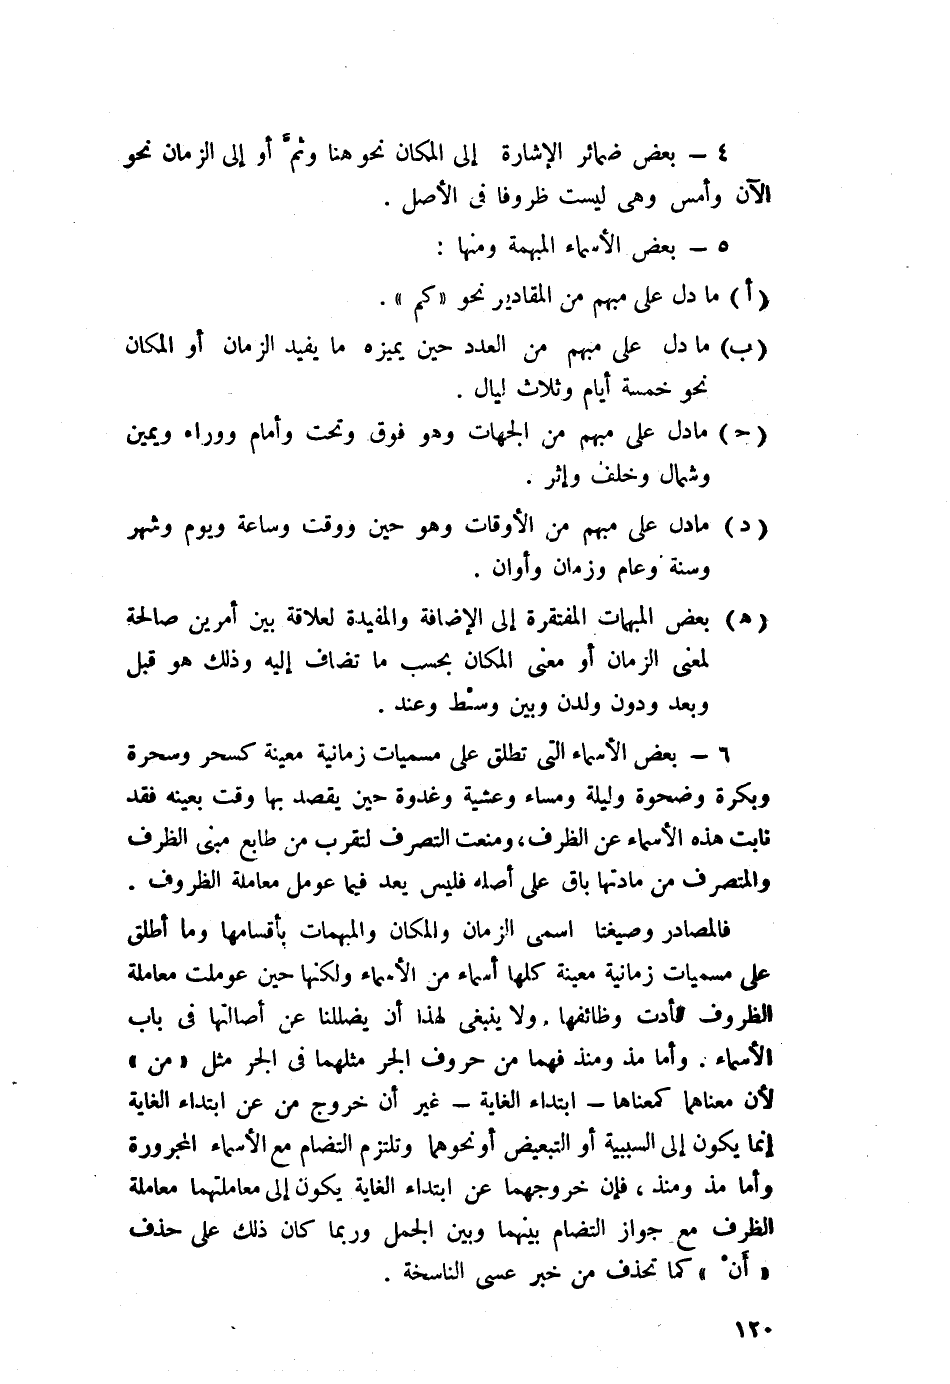 ٤ – بعض ضمائر الإشارة إلى المكان نحو هنا وثمَّ أو إلى الزمان نحو
الآن وأمس وهى ليست ظروفا فى الأصل .
٥ – بعض الأسماء المبهمة ومنها :
(أ) ما دل على مبهم من المقادير نحو «كم» .
(ب) ما دل على مبهم من العدد حين يميزه ما يفيد الزمان أو المكان
نحو خمسة أيام وثلاث ليال .
(ح) مادل على مبهم من الجهات وهو فوق وتحت وأمام ووراء ويمين
وشمال وخلف وإثر .
(د) مادل على مبهم من الأوقات وهو حين ووقت وساعة ويوم وشهر
وسنة وعام وزمان وأوان .
(ه) بعض المبهمات المفتقرة إلى الإضافة والمفيدة لعلاقة بين أمرين صالحة
لمعنى الزمان أو معنى المكان بحسب ما تضاف إليه وذلك هو قبل
وبعد ودون ولدن وبين وسْط وعند .
٦ – بعض الأسماء التى تطلق على مسميات زمانية معينة كسحر وسحرة
وبكرة وضحوة وليلة ومساء وعشية وغدوة حين يقصد بها وقت بعينه فقد
نابت هذه الأسماء عن الظرف، ومنعت التصرف لتقرب من طابع مبنى الظرف
والمتصرف من مادتها باق على أصله فليس يعد فيما عومل معاملة الظروف .
فالمصادر وصيغتا اسمى الزمان والمكان والمبهمات بأقسامها وما أطلق
على مسميات زمانية معينة كلها أسماء من الأسماء ولكنها حين عوملت معاملة
الظروف فأدت وظائفها . ولا ينبغى لهذا أن يضللنا عن أصالتها فى باب
الأسماء . وأما مذ ومنذ فهما من حروف الجر مثلهما فى الجر مثل « من »
لأن معناهما كمعناها – ابتداء الغاية – غير أن خروج من عن ابتداء الغاية
إنما يكون إلى السببية أو التبعيض أو نحوهما وتلتزم التضام مع الأسماء المجرورة
وأما مذ ومنذ ، فإن خروجهما عن ابتداء الغاية يكون إلى معاملتهما معاملة
الظرف مع جواز التضام بينهما وبين الجمل وربما كان ذلك على حذف
« أَنْ » كما تحذف من خبر عسى الناسخة .
١٢٠